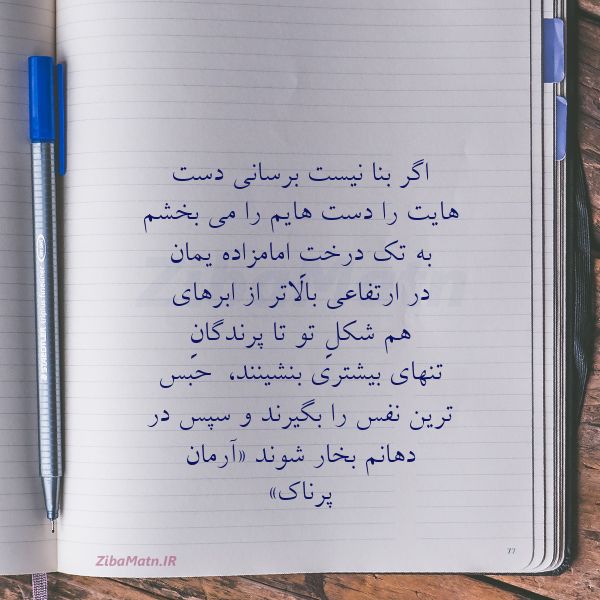 اگر بنا نیست برسانی دست
هایت را دست هایم را می بخشم
به تک درختِ امامزاده یمان
در ارتفاعی بالاتر از ابرهای
هم شکلِ تو تا پرندگانِ
تنهای بیشتری بنشینند، حبس
ترین نفس را بگیرند و سپس در
دهانم بخار شوند «آرمان
پرناک»
ZibaMatn.IR
77
STAEDTLER triplus fineliner